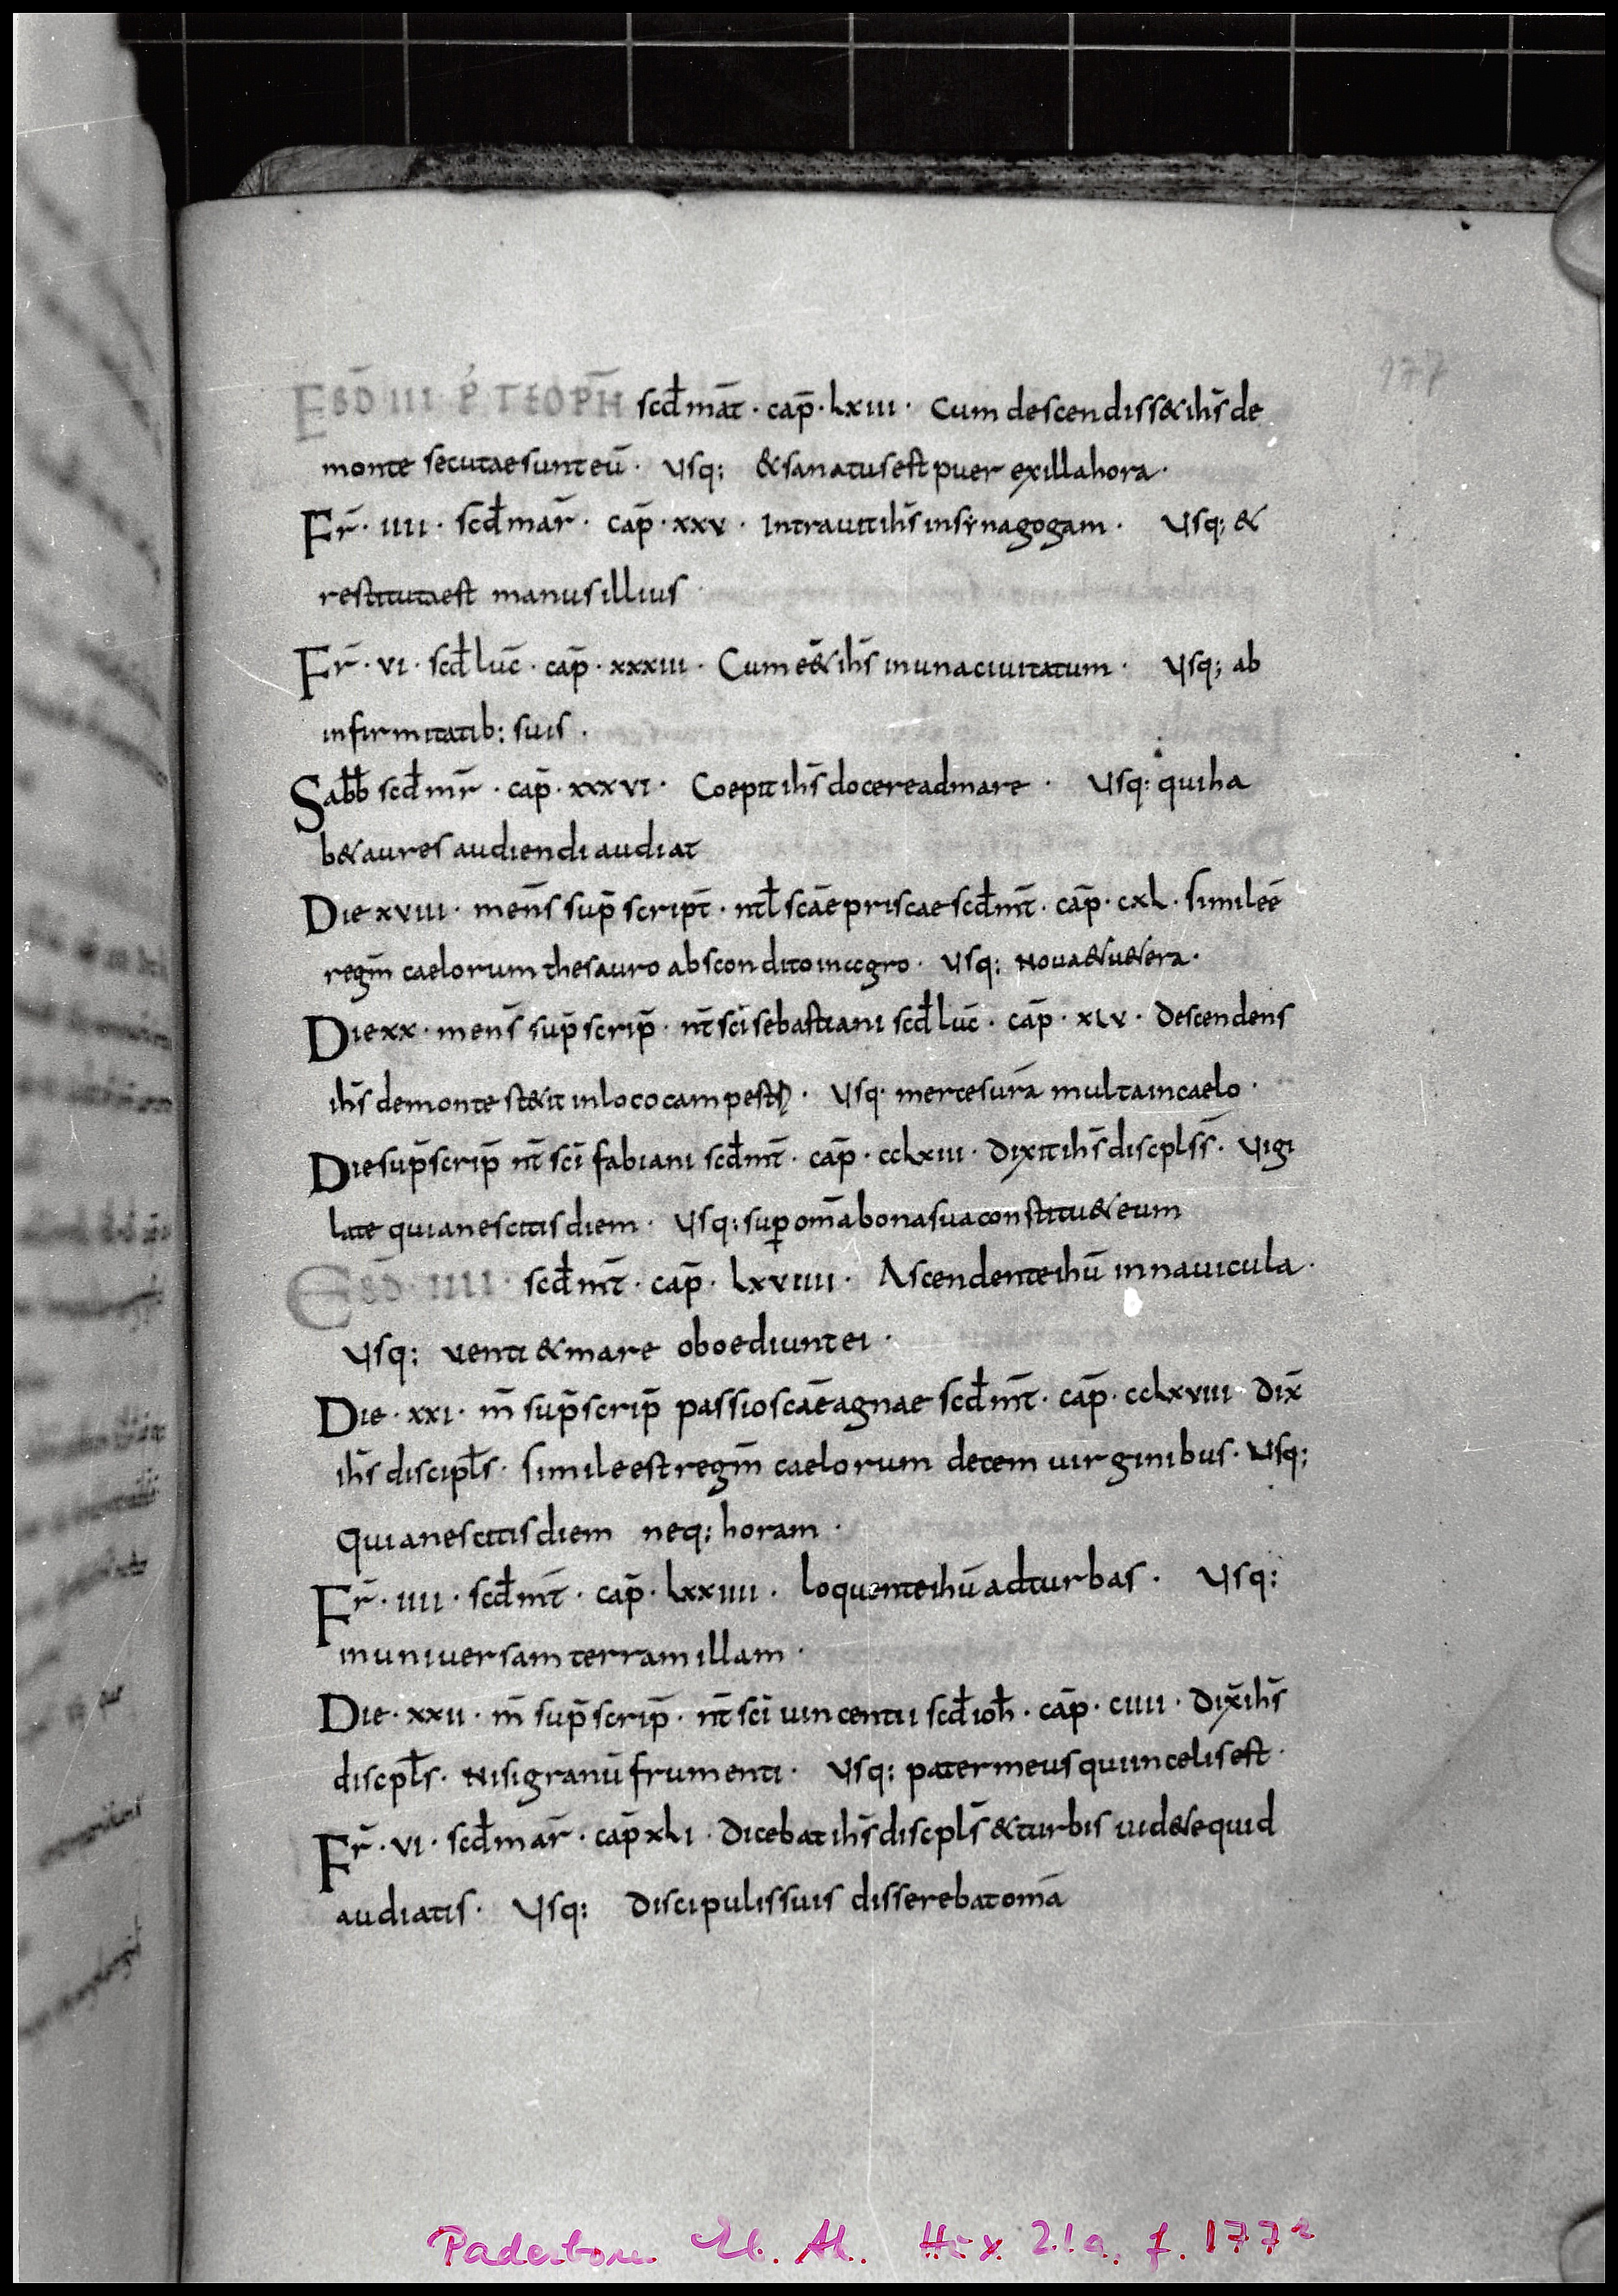 177
EBD III P̄ TEOPH̄ scd̄ mat̄ · cap̄ · Lxiii · Cum descendiss& ih̄s de
monte secutae sunt eū · Usq; & sanatus est puer ex illa hora ·
Fr̄ · iiii · scd̄ mar̄ · cap̄ · xxv · Intrauit ih̄s in synagogam · Usq; &
restituta est manus illius ·
Fr̄ · vi · scd̄ luc̄ · cap̄ · xxxiii · Cum eē& ih̄s in una ciuitatum · Usq; ab
infirmitatib: suis ·
Sab̄b̄ scd̄ mr̄ · cap̄ · xxxvi · Coepit ih̄s docere ad mare · Usq: qui ha
b& aures audiendi audiat
Die xviii · men̄s sup̄ script̄ · ntł scāe priscae scd̄ mt̄ · cap̄ · cxL · simile ē
regm̄ caelorum thesauro abscondito in agro · Usq; Noua & u&era ·
Die xx · men̄s sup̄ scrip̄ · nt̄ sci sebastiani scd̄ luc̄ · cap̄ · xLv · Descendens
ih̄s de monte st&it in loco campestr · Usq · merces ur̄a multa in caelo ·
Die sup̄ scrip̄ nt̄ sci fabiani scd̄ mt̄ · cap̄ · ccLxiii · Dixit ih̄s discpls̄s · Vigi
late quia nescitis diem · Usq: sup om̄a bona sua constitu& eum
EBD · IIII · scd̄ mt̄ · cap̄ · Lxviiii · Ascendente ihū in nauicula ·
Usq; uenti & mare oboediunt ei ·
Die · xxi · m̄ sup̄ scrip̄ passio scāe agnae scd̄ mt̄ · cap̄ · ccLxviii · Dix̄
ih̄s discipl̄s · simile est regm̄ caelorum decem uirginibus · Usq;
Quia nescitis diem neq; horam ·
Fr̄ · iiii · scd̄ mt̄ · cap̄ · Lxxiiii · Loquente ihū ad turbas · Usq:
in uniuersam terram illam ·
Die · xxii · m̄ sup̄ scrip̄ · nt̄ sci uincentii scd̄ ioh̄ · cap̄ · ciiii · Dix̄ ih̄s
discpl̄s · Nisi granū frumenti · Usq; pater meus qui in celis est ·
Fr̄ · vi · scd̄ mar̄ · cap̄ xLi · Dicebat ih̄s discpl̄s & turbis uid&e quid
audiatis · Usq: Discipulis suis disserebat omā
Paderborn Hux 21a, f. 177r